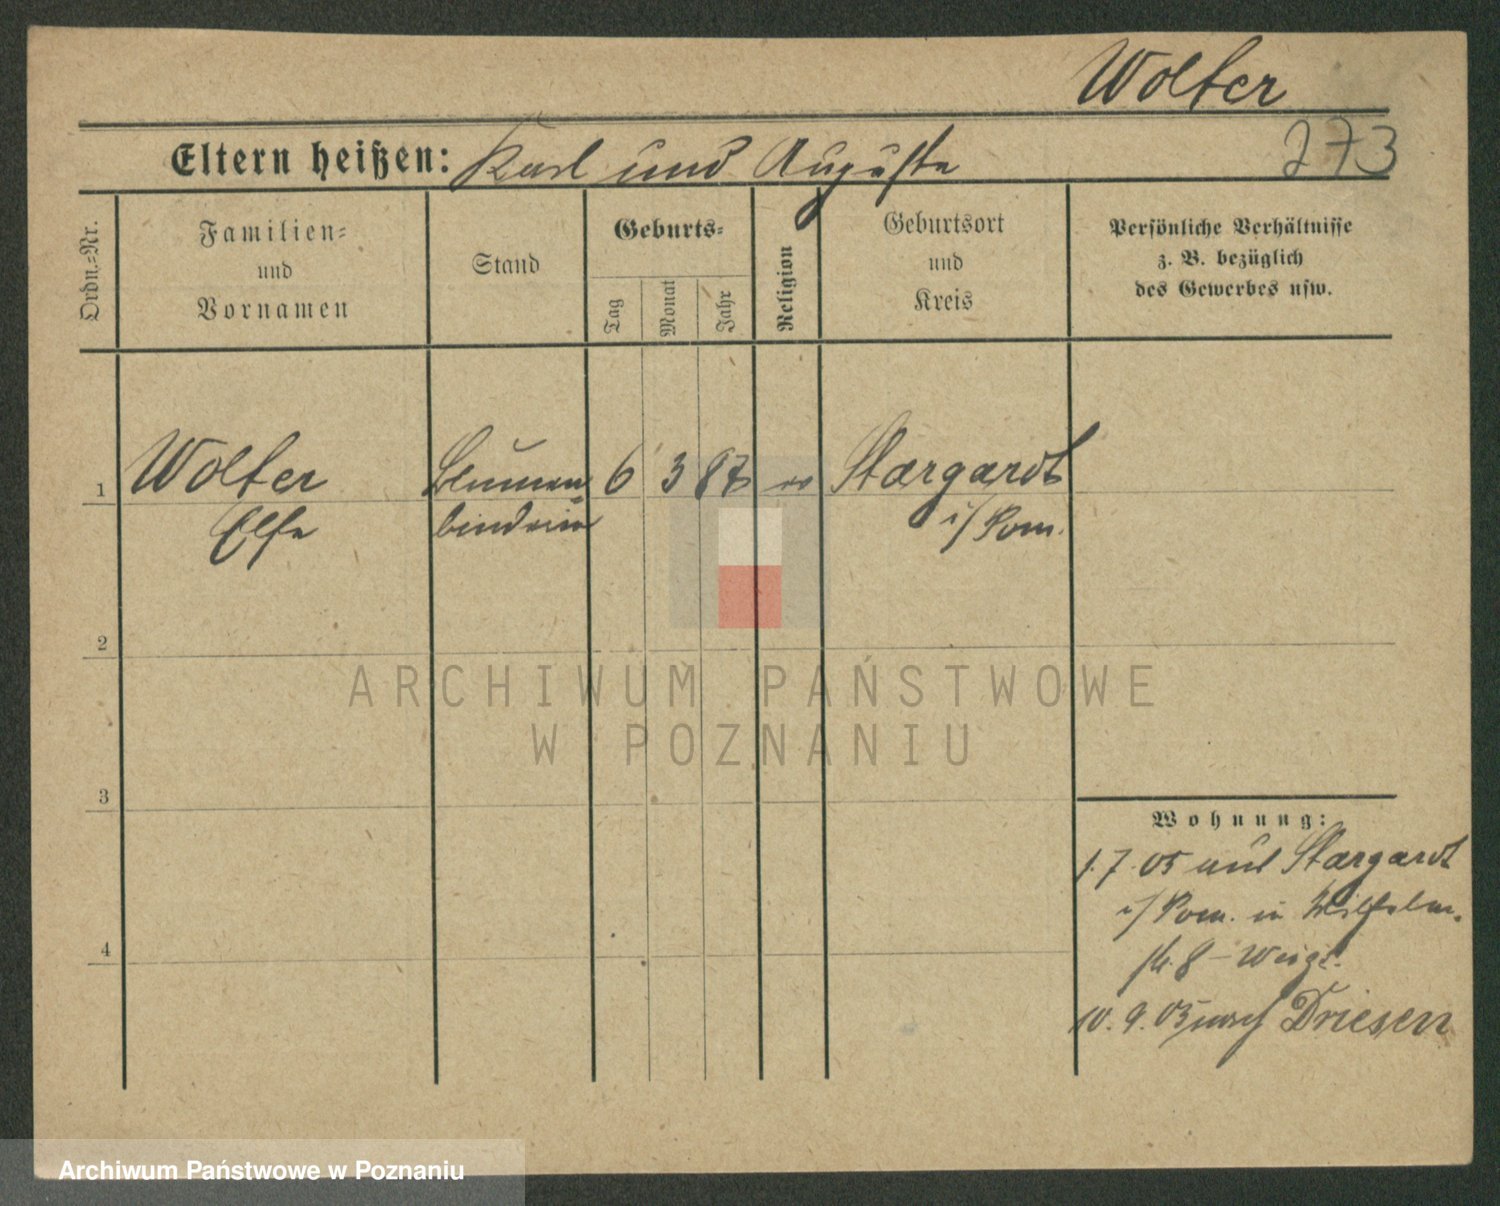 Wolter
Eltern heißen: Karl und Auguste 273
Ordn.=Nr.
Familien=
und
Vornamen
Stand
Geburts=
Tag
Monat
Jahr
Religion
Geburtsort
und
Kreis
Persönliche Verhältnisse
z. B. bezüglich
des Gewerbes usw.
1 Wolter Blumen= 6 3 87 ev Stargardt
Else binderin i/Pom.
2
3
4
Wohnung:
1.7.05 aus Stargardt
i/Pom. in Wilhelm-
str. 8
10.9.05 nach Driesen
ARCHIWUM PAŃSTWOWE
W POZNANIU
Archiwum Państwowe w Poznaniu